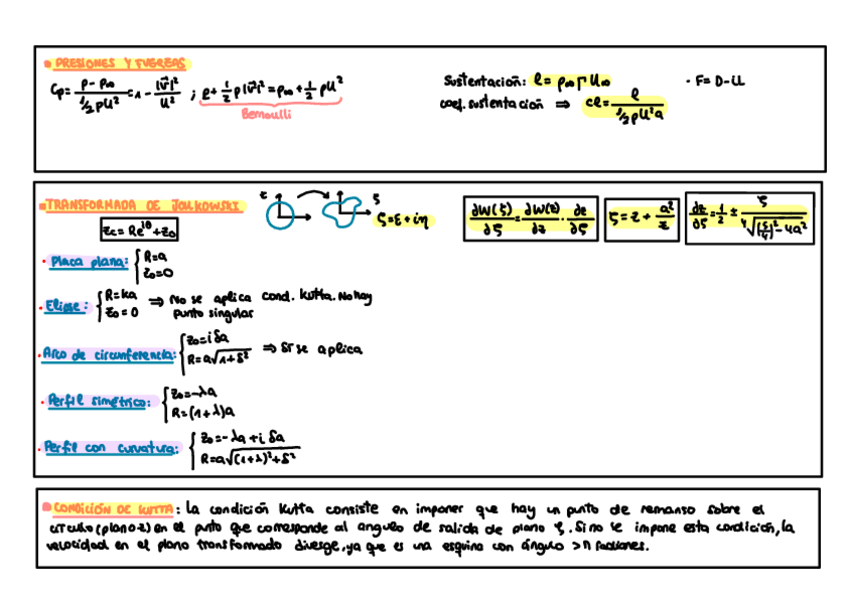 PRESIONES Y FUERZAS
Cp = (p - p∞)/(1/2 ρU²) = 1 - |v⃗|²/U² ; p + 1/2 ρ|v⃗|² = p∞ + 1/2 ρU²
Bernoulli
Sustentación: l = ρ∞ Γ U∞
coef. sustentación ⇒ cl = l/(1/2 ρU²a)
· F = D - iL
TRANSFORMADA DE JOUKOWSKI
z ζ
ζ = ε + iη
∂W(ζ)/∂ζ = ∂W(z)/∂z · ∂z/∂ζ
ζ = z + a²/z
Zc = Re^iθ + Z0
· Placa plana: { R=a
Z0=0
· Elipse: { R=ka ⇒ No se aplica cond. Kutta. No hay
Z0=0 punto singular
· Arco de circunferencia: { Z0=iδa
R=a√(1+δ²) ⇒ Sí se aplica
· Perfil simétrico: { Z0=-λa
R=(1+λ)a
· Perfil con curvatura: { Z0=-λa+i δa
R=a√((1+λ)²+δ²)
CONDICIÓN DE KUTTA: La condición Kutta consiste en imponer que hay un punto de remanso sobre el
círculo (plano z) en el punto que corresponde al angulo de salida de plano ζ. Si no se impone esta condición, la
velocidad en el plano transformado diverge, ya que es una esquina con ángulo >π